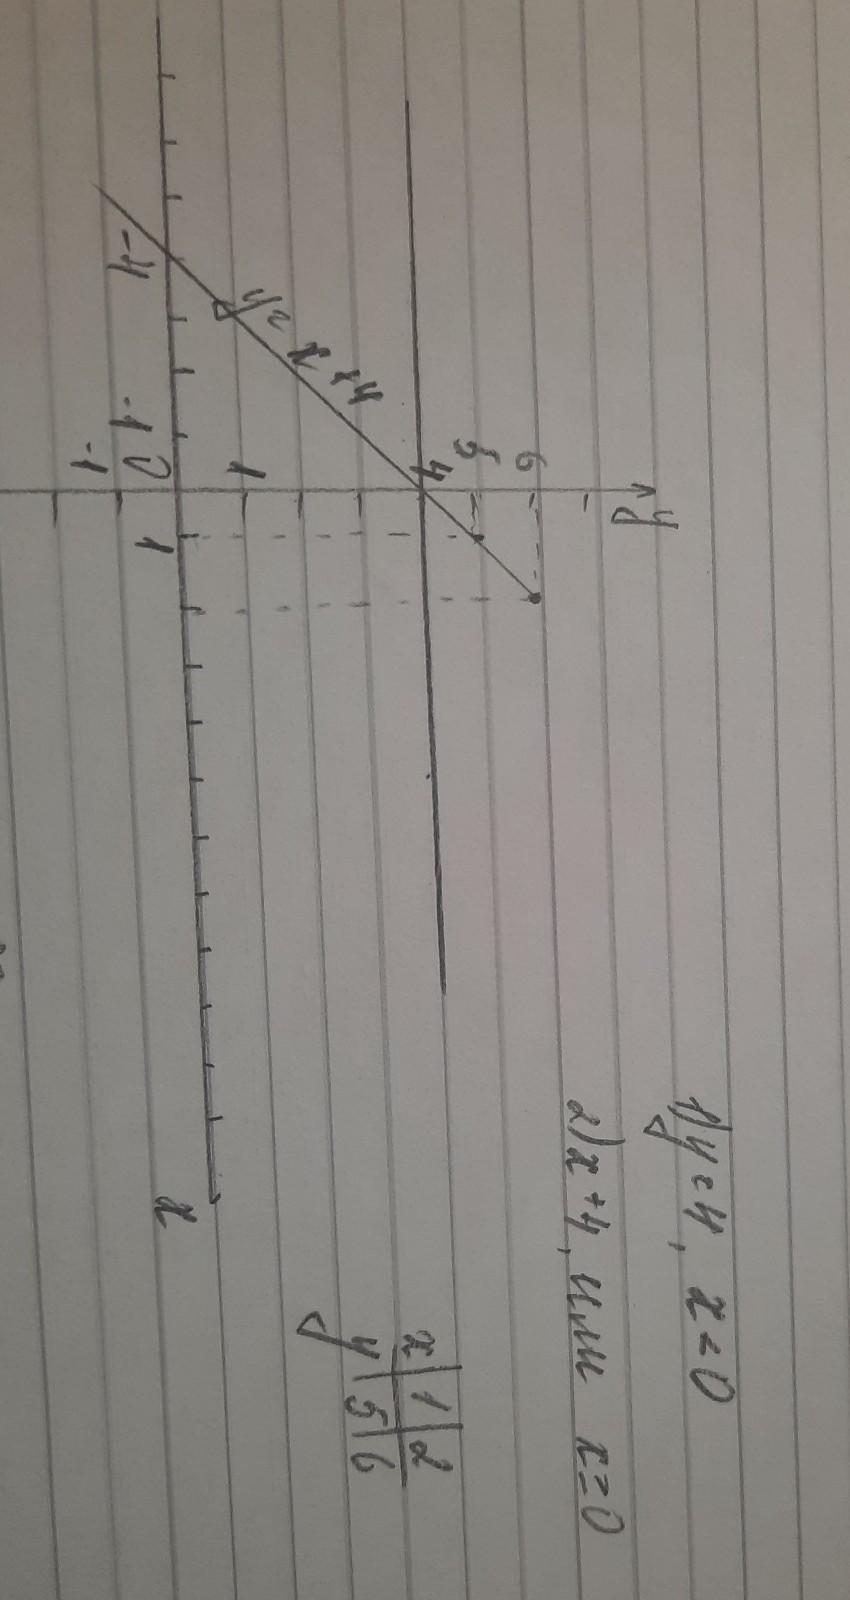 1) y = 4, x < 0
2) x + 4, или x ≥ 0
x | 1 | 2
y | 5 | 6
y
6
5
4
y = x + 4
1
-4 -1 0 1 x
-1